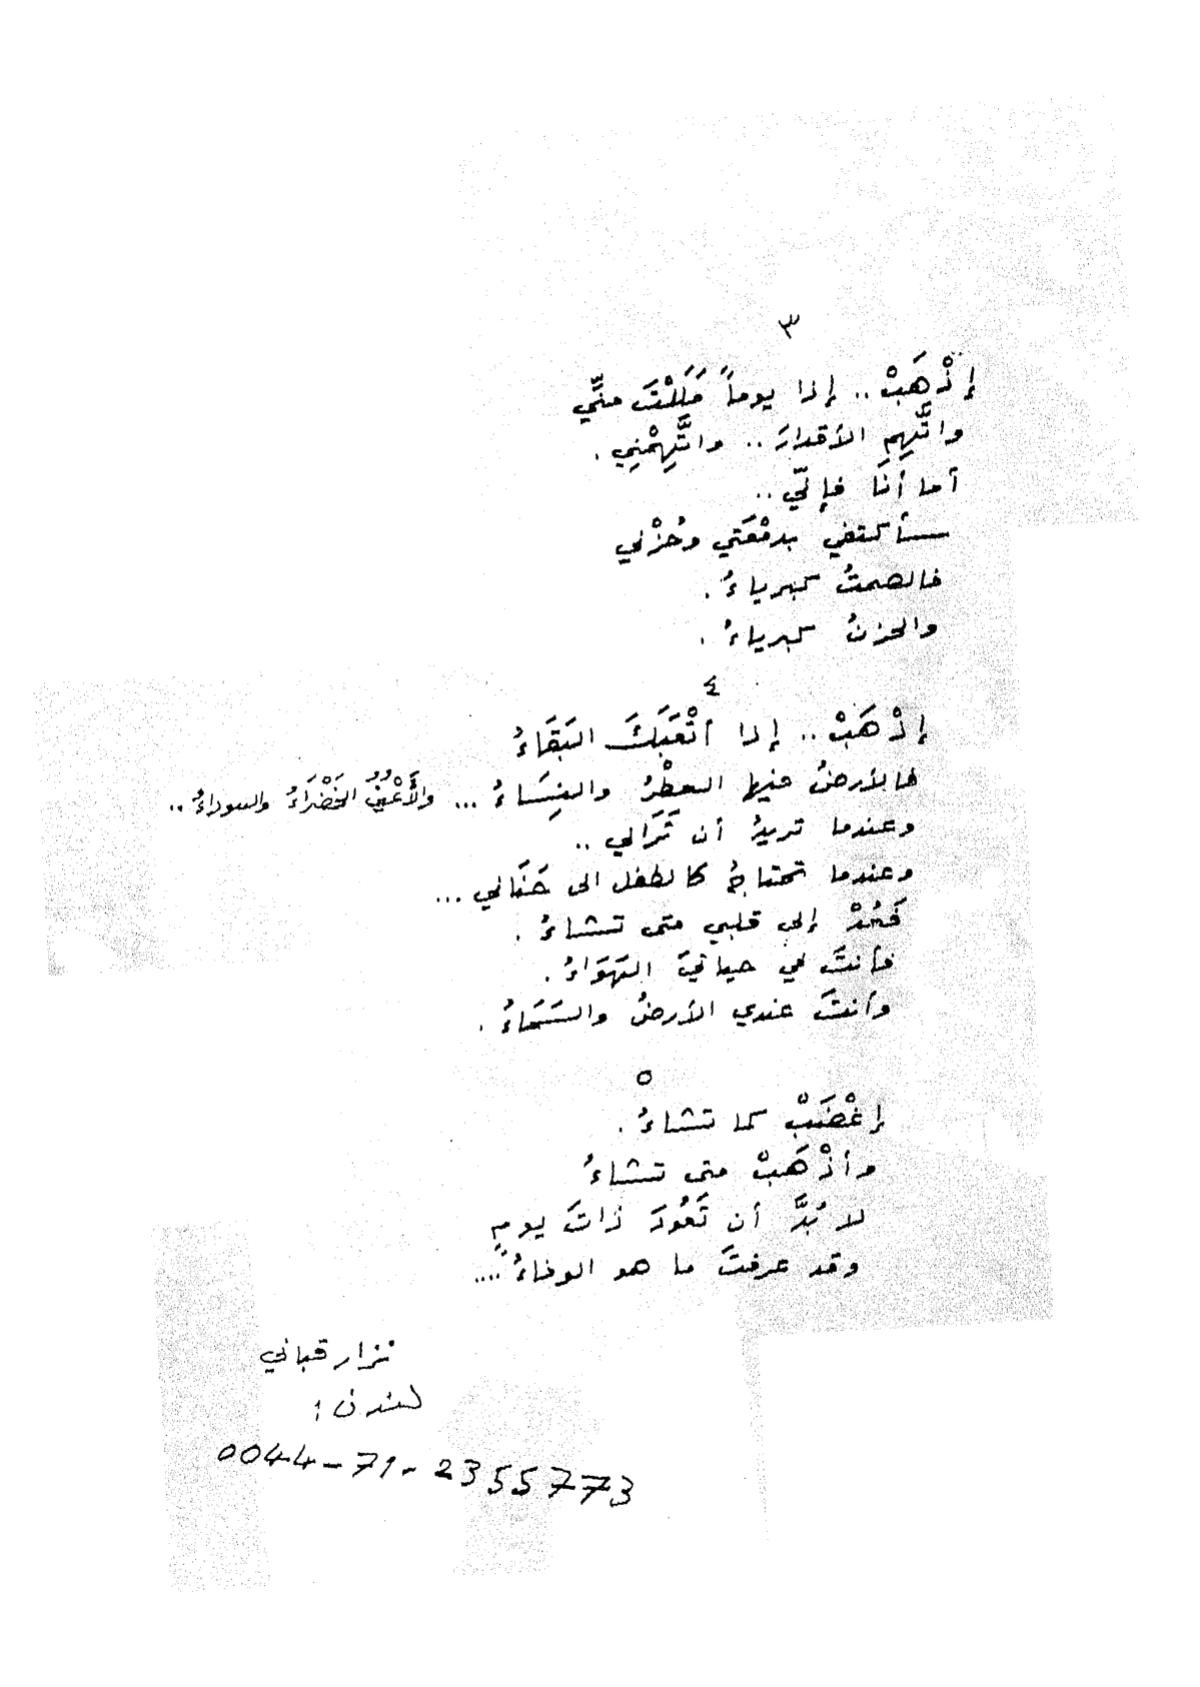 ٣
إذْهَبْ .. إذا يوماً مَلَلْتَ منّي
واتَّهِمِ الأقدارَ .. واتَّهِمْني .
أما أنَا فإنّي ..
سأكتفي بدمْعَتي وحُزْني
فالصمتُ كبرياءُ .
والحزنُ كبرياءُ .
٤
إذْهَبْ .. إذا أتْعَبَكَ البَقَاءُ
فالأرضُ فيها العطْرُ والنِسَاءُ ... والأَعْيُنُ الخَضْرَاءُ والسوداءُ ..
وعندما تريدُ أن تَرَاني ..
وعندما تحتاجُ كالطفل الى حَنَاني ...
فَعُدْ إلى قلبي متى تشاءُ .
فأنتَ في حياتيَ الهَوَاءُ .
وأنتَ عندي الأرضُ والسَمَاءُ .
٥
إغْضَبْ كما تشاءُ .
وأذْهَبْ متى تشاءُ
لا بُدَّ أن تَعُودَ ذاتَ يومٍ
وقد عرفتَ ما هو الوفاءُ ....
نزار قباني
لندن :
0044-71-2355773